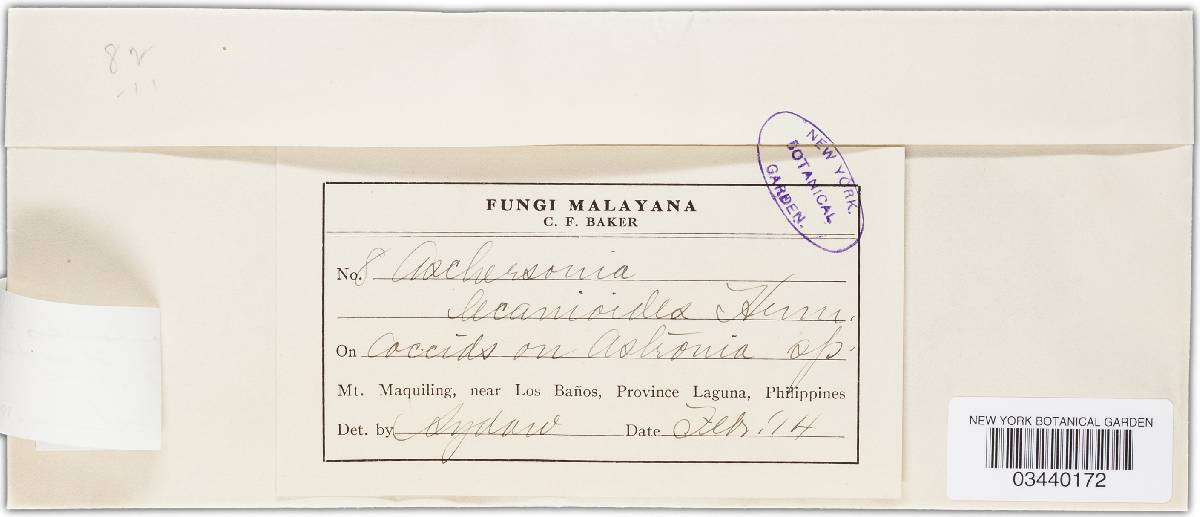 82
NEW YORK
BOTANICAL
GARDEN.
FUNGI MALAYANA
C. F. BAKER
No. 8 Aschersonia
lecanioides Henn.
On Coccids on Astronia sp.
Mt. Maquiling, near Los Baños, Province Laguna, Philippines
Det. by Sydow Date Feb. '14
NEW YORK BOTANICAL GARDEN
03440172